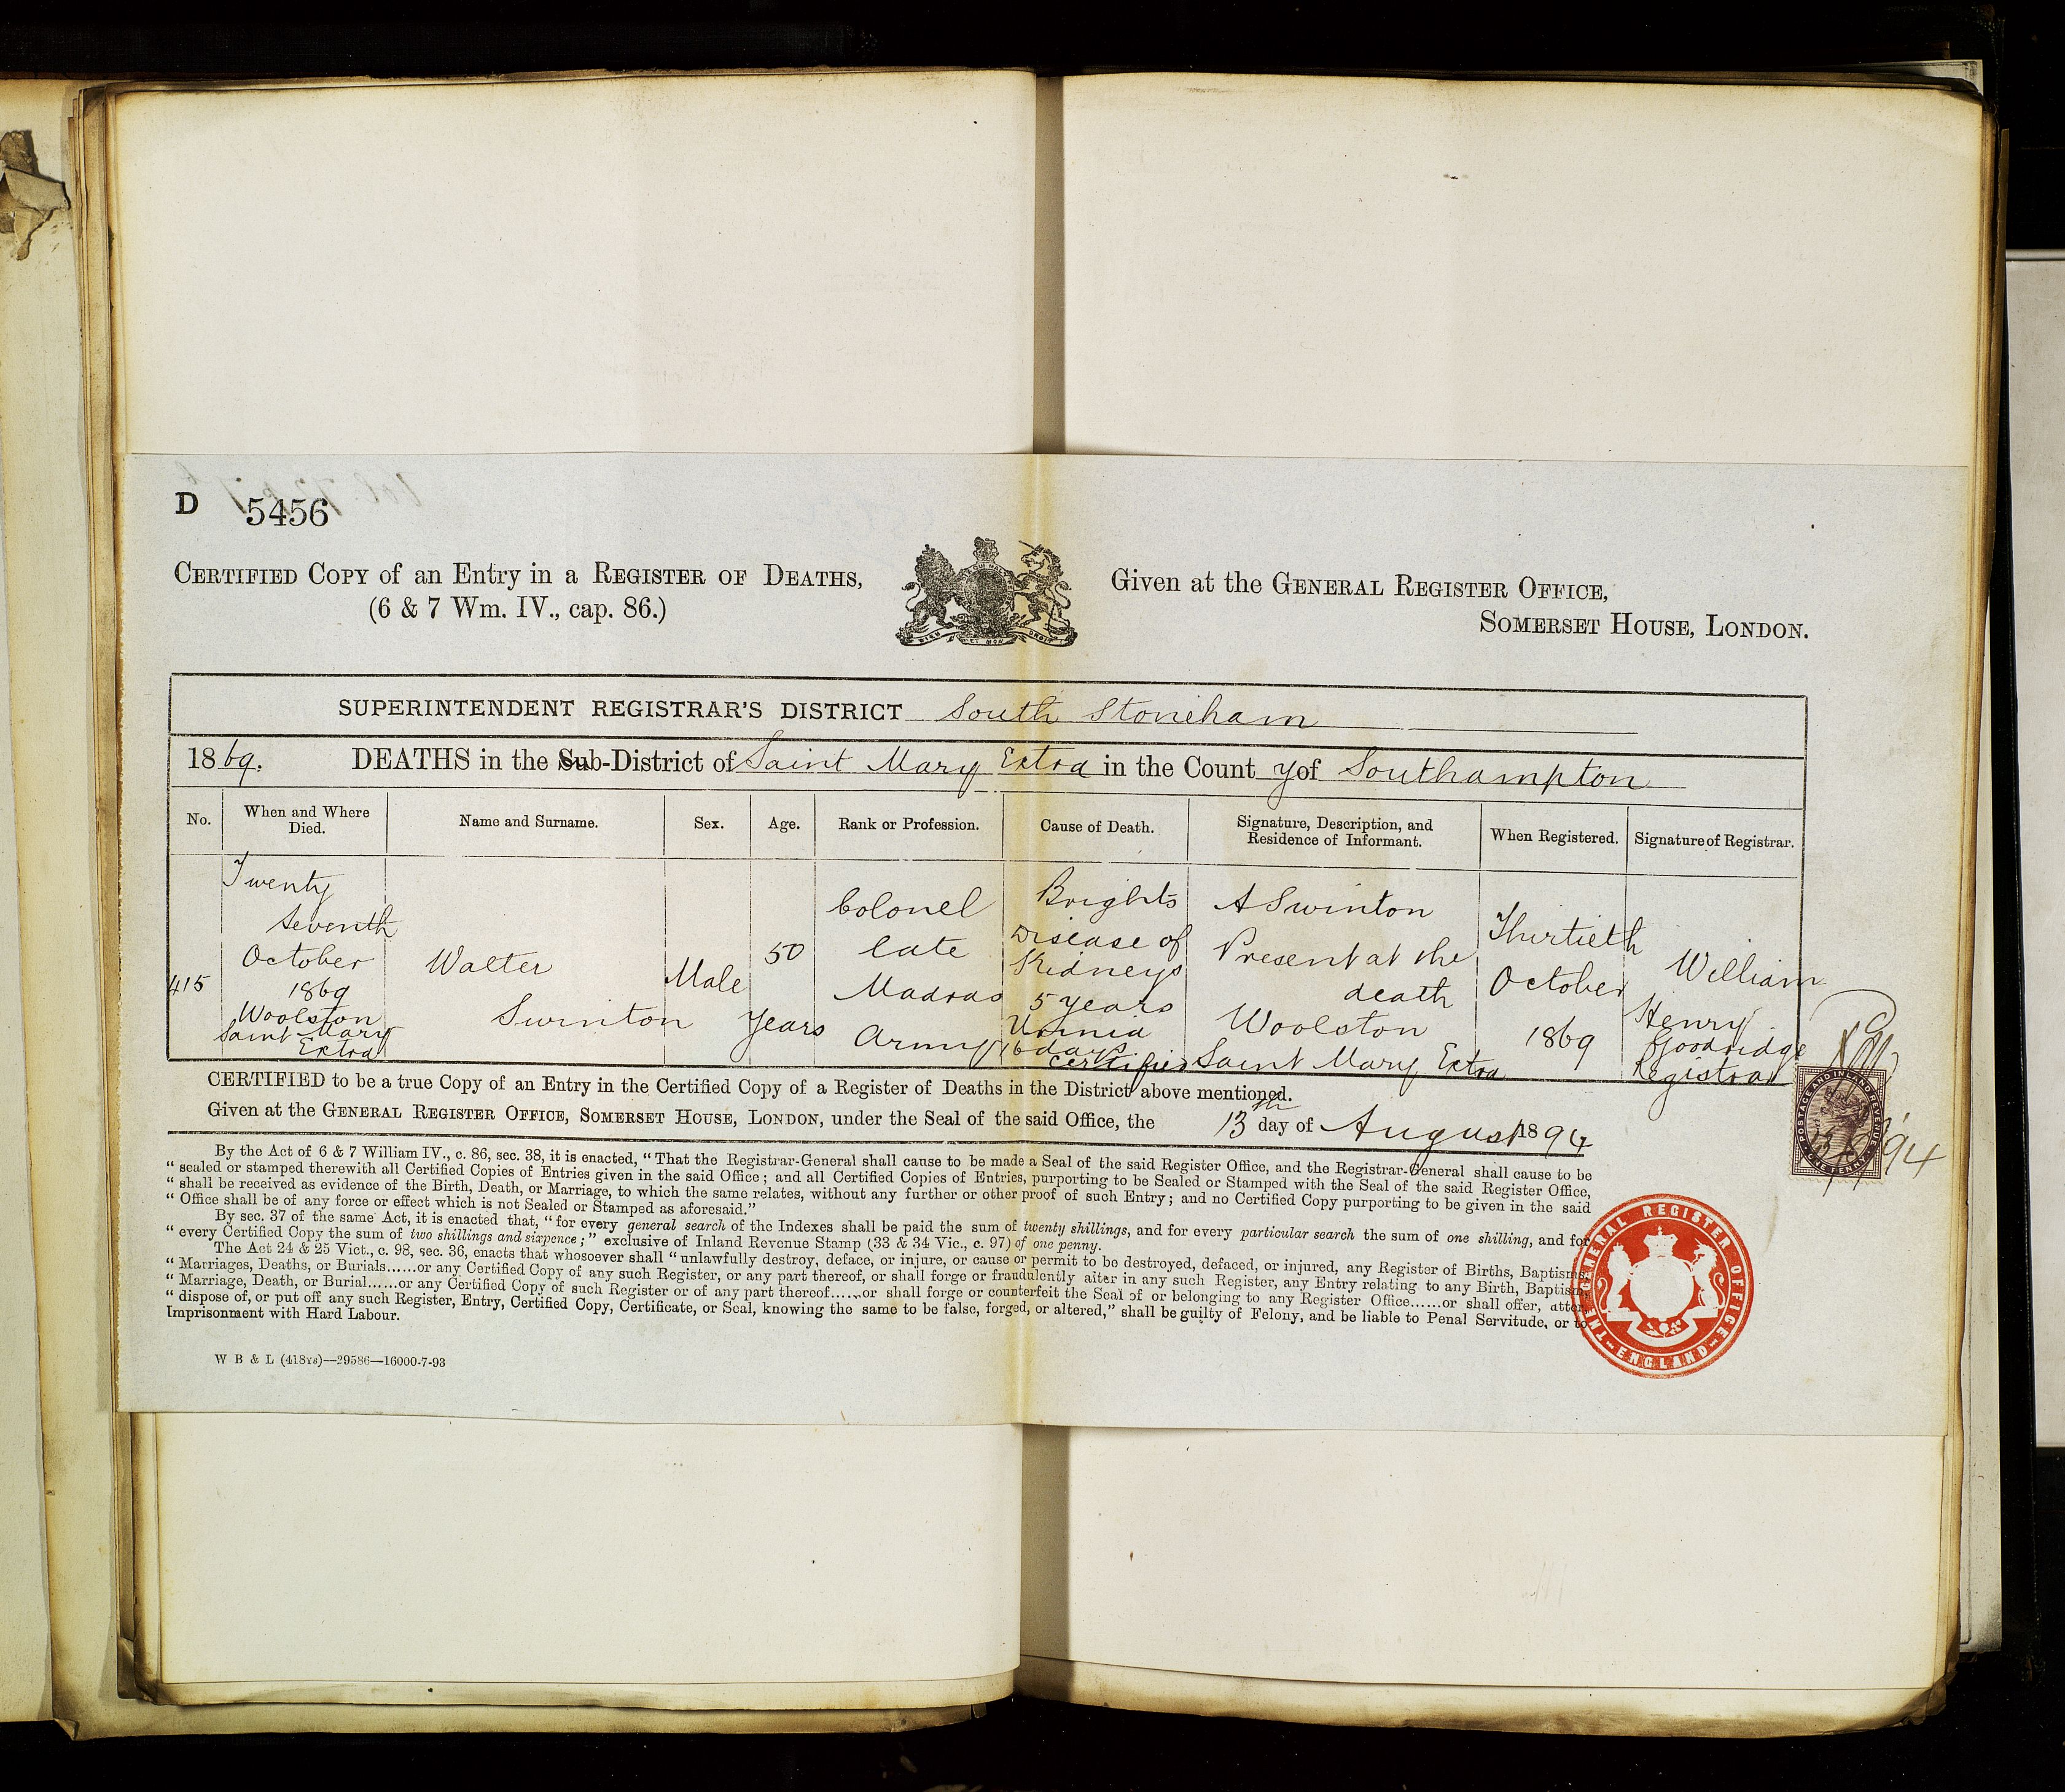 D 5456
CERTIFIED COPY of an Entry in a REGISTER OF DEATHS,
(6 & 7 Wm. IV., cap. 86.)
Given at the GENERAL REGISTER OFFICE,
SOMERSET HOUSE, LONDON.
SUPERINTENDENT REGISTRAR'S DISTRICT South Stoneham
1869. DEATHS in the Sub-District of Saint Mary Extra in the County of Southampton
No.
When and Where
Died.
Name and Surname.
Sex.
Age.
Rank or Profession.
Cause of Death.
Signature, Description, and
Residence of Informant.
When Registered.
Signature of Registrar.
415
Twenty
Seventh
October
1869
Woolston
Saint Mary
Extra
Walter
Swinton
Male
50
Years
Colonel
late
Madras
Army
Brights
Disease of
Kidneys
5 years
Urinia
16 days
Certified
A Swinton
Present at the
death
Woolston
Saint Mary Extra
Thirtieth
October
1869
William
Henry
Goodridge
Registrar
CERTIFIED to be a true Copy of an Entry in the Certified Copy of a Register of Deaths in the District above mentioned.
Given at the GENERAL REGISTER OFFICE, SOMERSET HOUSE, LONDON, under the Seal of the said Office, the 13th day of August 1894
By the Act of 6 & 7 William IV., c. 86, sec. 38, it is enacted, "That the Registrar-General shall cause to be made a Seal of the said Register Office, and the Registrar-General shall cause to be
"sealed or stamped therewith all Certified Copies of Entries given in the said Office; and all Certified Copies of Entries, purporting to be Sealed or Stamped with the Seal of the said Register Office,
"shall be received as evidence of the Birth, Death, or Marriage, to which the same relates, without any further or other proof of such Entry; and no Certified Copy purporting to be given in the said
"Office shall be of any force or effect which is not Sealed or Stamped as aforesaid."
By sec. 37 of the same Act, it is enacted that, "for every general search of the Indexes shall be paid the sum of twenty shillings, and for every particular search the sum of one shilling, and for
"every Certified Copy the sum of two shillings and sixpence;" exclusive of Inland Revenue Stamp (33 & 34 Vic., c. 97) of one penny.
The Act 24 & 25 Vict., c. 98, sec. 36, enacts that whosoever shall "unlawfully destroy, deface, or injure, or cause or permit to be destroyed, defaced, or injured, any Register of Births, Baptisms,
"Marriages, Deaths, or Burials......or any Certified Copy of any such Register, or any part thereof, or shall forge or fraudulently alter in any such Register, any Entry relating to any Birth, Baptism,
"Marriage, Death, or Burial......or any Certified Copy of such Register or of any part thereof......or shall forge or counterfeit the Seal of or belonging to any Register Office......or shall offer, utter,
"dispose of, or put off any such Register, Entry, Certified Copy, Certificate, or Seal, knowing the same to be false, forged, or altered," shall be guilty of Felony, and be liable to Penal Servitude, or to
Imprisonment with Hard Labour.
W B & L (418rs)—29586—16000-7-93
POSTAGE AND INLAND REVENUE
ONE PENNY
13/8/94
THE GENERAL REGISTER OFFICE
ENGLAND